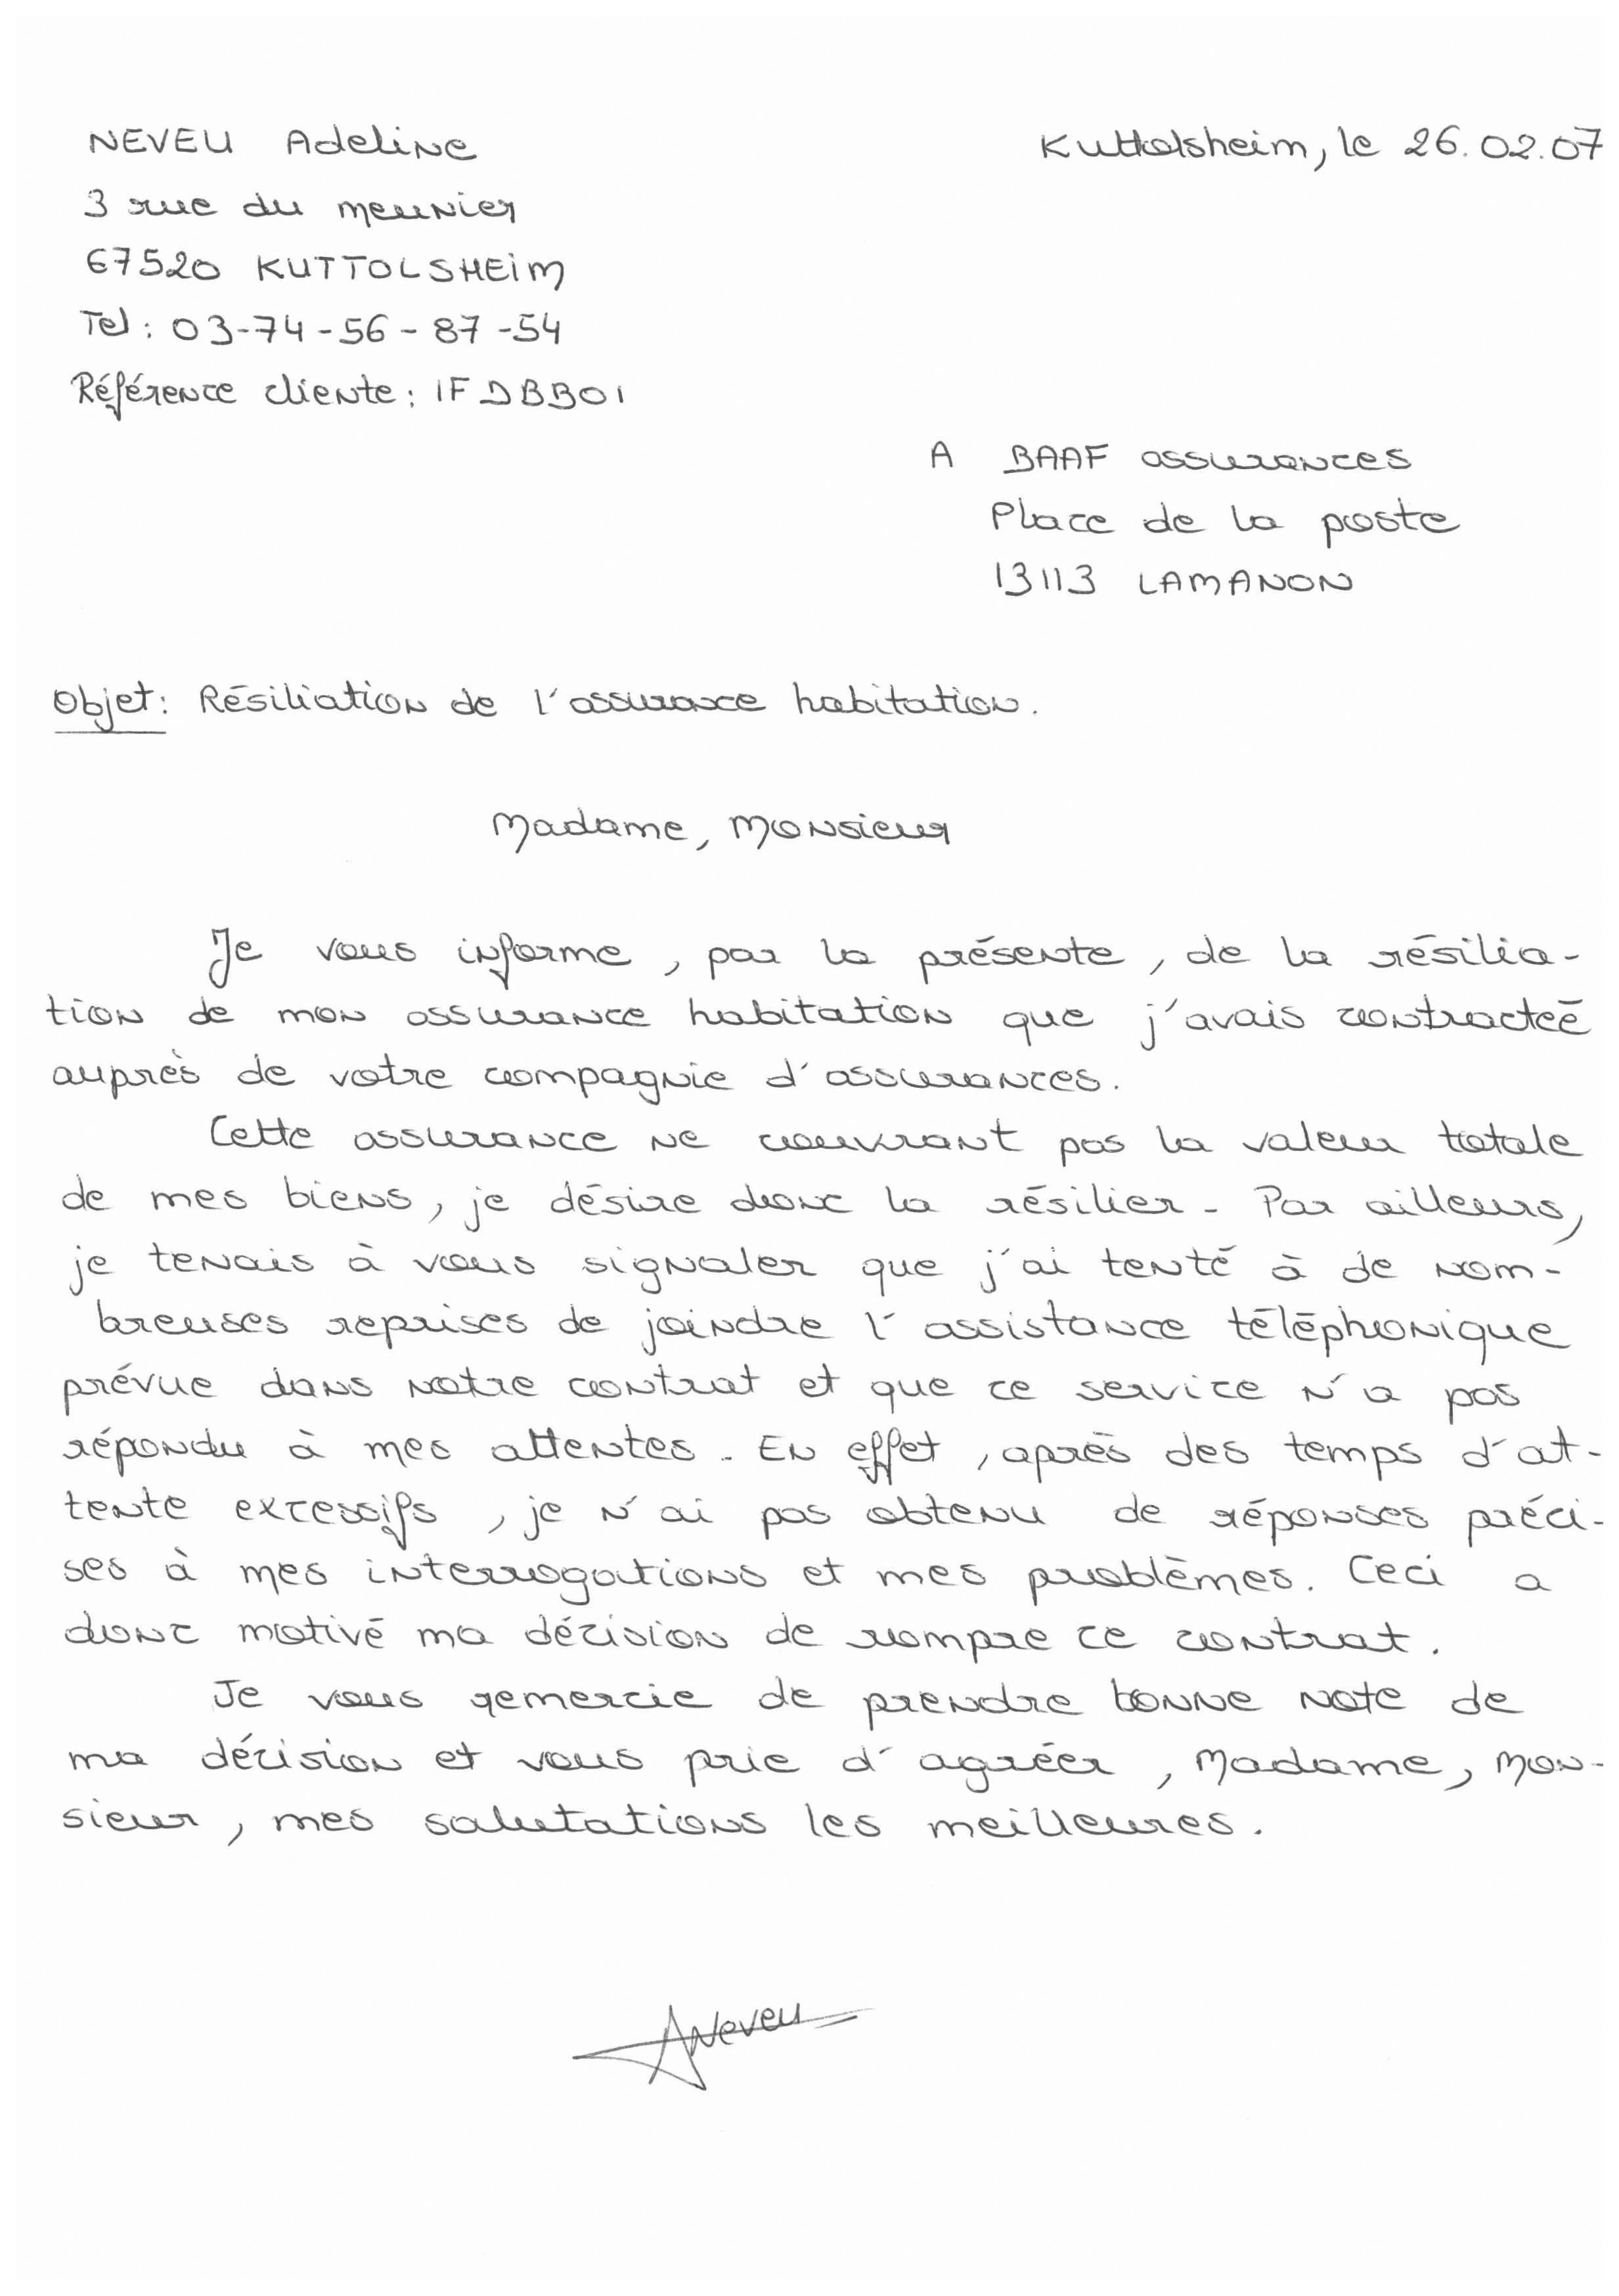 NEVEU Adeline
Kuttolsheim, le 26.02.07
3 rue du meunier
67520 KUTTOLSHEIM
Tel : 03-74-56-87-54
Référence cliente : IFDBB01
A BAAF assurances
Place de la poste
13113 LAMANON
Objet : Résiliation de l'assurance habitation.
Madame, Monsieur
Je vous informe, par la présente, de la résilia-
tion de mon assurance habitation que j'avais contractée
auprès de votre compagnie d'assurances.
Cette assurance ne couvrant pas la valeur totale
de mes biens, je désire donc la résilier. Par ailleurs,
je tenais à vous signaler que j'ai tenté à de nom-
breuses reprises de joindre l'assistance téléphonique
prévue dans notre contrat et que ce service n'a pas
répondu à mes attentes. En effet, après des temps d'at-
tente excessifs, je n'ai pas obtenu de réponses préci-
ses à mes interrogations et mes problèmes. Ceci a
donc motivé ma décision de rompre ce contrat.
Je vous remercie de prendre bonne note de
ma décision et vous prie d'agréer, Madame, Mon-
sieur, mes salutations les meilleures.
ANeveu